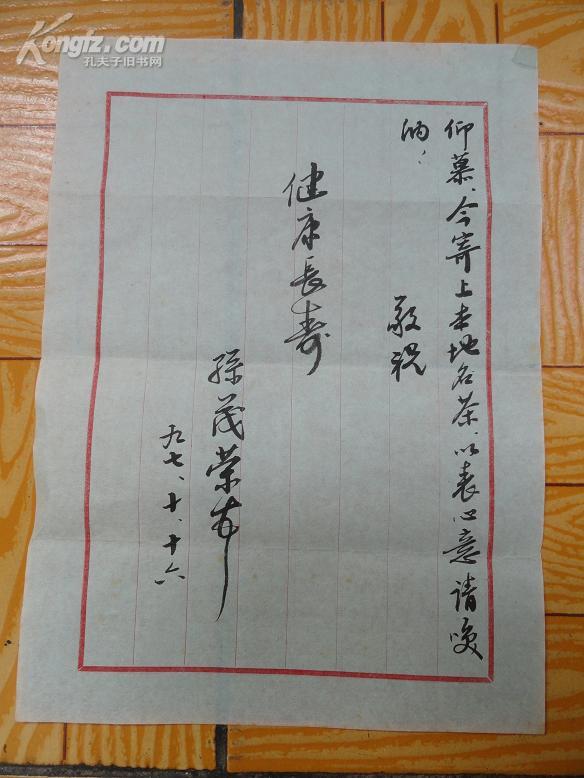 Kongfz.com
孔夫子旧书网
仰慕、今寄上本地名茶、以表心意请唤
纳、
敬祝
健康長寿
孫茂荣
九七、十、十六